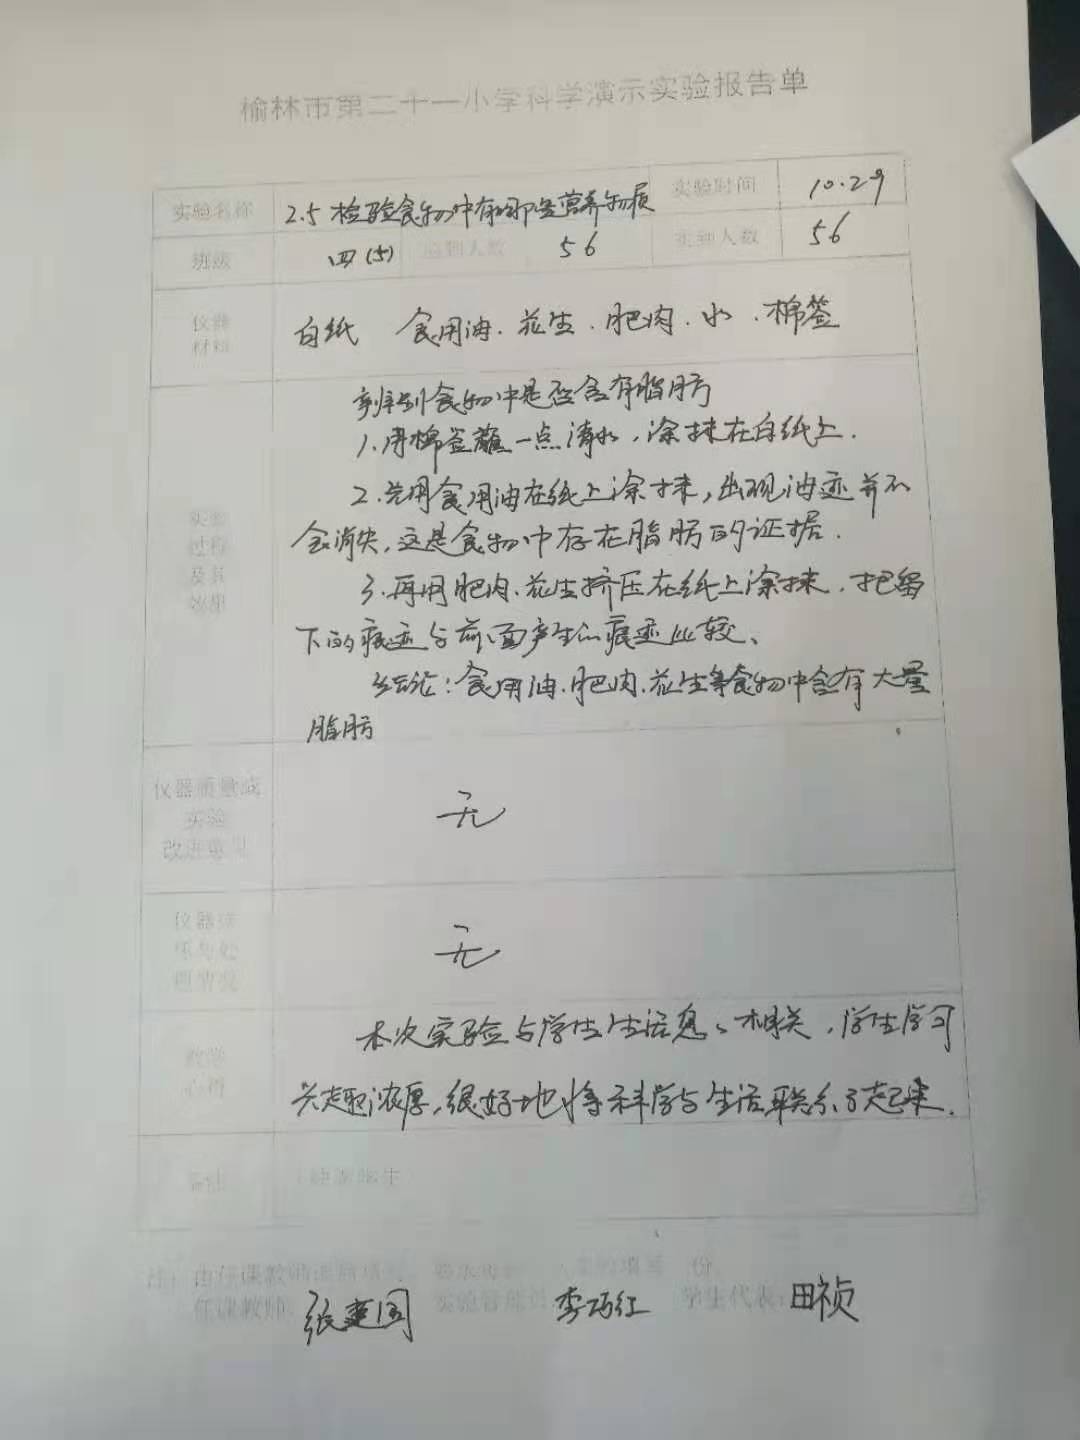 榆林市第二十一小学科学演示实验报告单
实验名称 2.5 检验食物中有哪些营养物质 实验时间 10.29
班级 四(5) 应到人数 56 实到人数 56
仪器
材料
白纸 食用油、花生、肥肉、水、棉签
辨别食物中是否含有脂肪
1.用棉签蘸一点清水,涂抹在白纸上.
2.先用食用油在纸上涂抹,出现油迹并不
会消失,这是食物中存在脂肪的证据.
实验
过程
及其
效果
3.再用肥肉、花生挤压在纸上涂抹.把留
下的痕迹与前面产生的痕迹比较、
结论:食用油、肥肉、花生等食物中含有大量
脂肪
仪器质量或
实验
改进意见
无
仪器
无
教学
心得
本次实验与学生生活息息相关,学生学习
兴趣浓厚,很好地将科学与生活联系了起来.
备注
注:由任课教师 填写 份
任课教师: 张建国 实验管理员: 李巧红 学生代表: 田祯